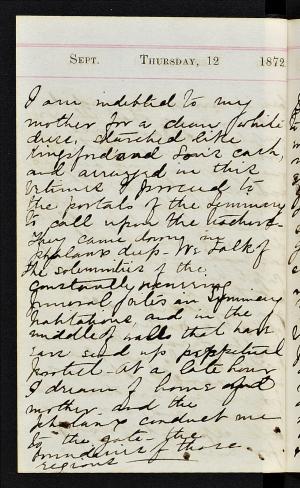 Sept. Thursday, 12 1872
I am indebted to my
mother for a clean white
dress, starched like
Kingsford and Son's cash
and arrayed in this
I proceed to
the portals of the seminary
to call upon the teachers
They came down in
phalanx deep - We talk of
the solemnities of the
constantly recurring
funeral in seminary
habitations, and in the
middle of walls that have
ears send up perpetual
protest - At a late hour
I dream of home and
mother - and the
phalanx conduct me
to the gate - the
of those
regions